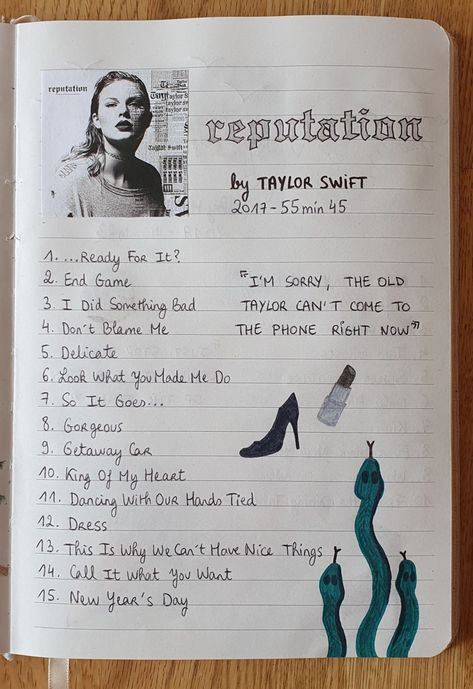 reputation
Taylor Swift
reputation
by TAYLOR SWIFT
2017-55 min 45
1. ...Ready For It?
2. End Game
3. I Did Something Bad
4. Don't Blame Me
5. Delicate
6. Look What You Made Me Do
7. So It Goes...
8. Gorgeous
9. Getaway Car
10. King Of My Heart
11. Dancing With Our Hands Tied
12. Dress
13. This Is Why We Can't Have Nice Things
14. Call It What You Want
15. New Year's Day
"I'M SORRY, THE OLD
TAYLOR CAN'T COME TO
THE PHONE RIGHT NOW"